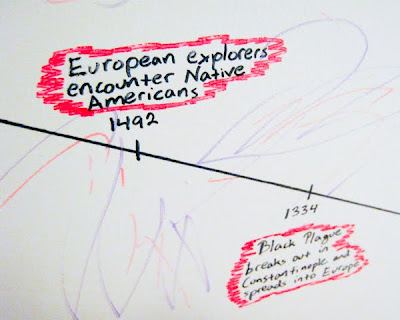 European explorers
encounter Native
Americans
1492
1334
Black Plague
breaks out in
Constantinople and
spreads into Europe